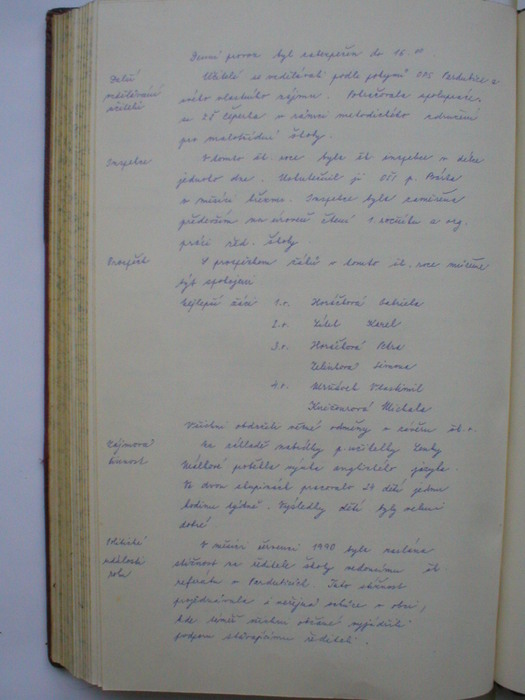 Denní provoz byl zabezpečen do 15.00.
Další
vzdělávání
učitelů
Učitelé se vzdělávali podle pokynů OPS Pardubice a
svého vlastního zájmu. Pokračovala spolupráce
se ZŠ Čeperka v rámci metodického sdružení
pro málotřídní školy.
Inspekce
V tomto šk. roce byla šk. inspekce v délce
jednoho dne. Uskutečnil ji OŠI p. Bárta
v měsíci březnu. Inspekce byla zaměřena
především na úroveň čtení 1. ročníku a org.
práci řed. školy.
Prospěch
S prospěchem žáků v tomto šk. roce můžeme
být spokojeni
Nejlepší žáci 1.r. Horáčková Gabriela
2.r. Karel
3.r. Horáčková Petra
Simona
4.r. Vlastimil
Michala
Všichni obdrželi věcné odměny v závěru šk. r.
Zájmová
činnost
Na základě nabídky p. učitelky Lenky
proběhla výuka anglického jazyka.
Ve dvou skupinách pracovalo 24 dětí jednu
hodinu týdně. Výsledky dětí byly velmi
dobré
Politické
události
roku
V měsíci červenci 1990 byla zaslána
stížnost na ředitele školy vedoucímu šk.
referátu v Pardubicích. Tato stížnost
projednávala i veřejná schůze v obci,
kde téměř všichni občané vyjádřili
podporu stávajícímu řediteli.